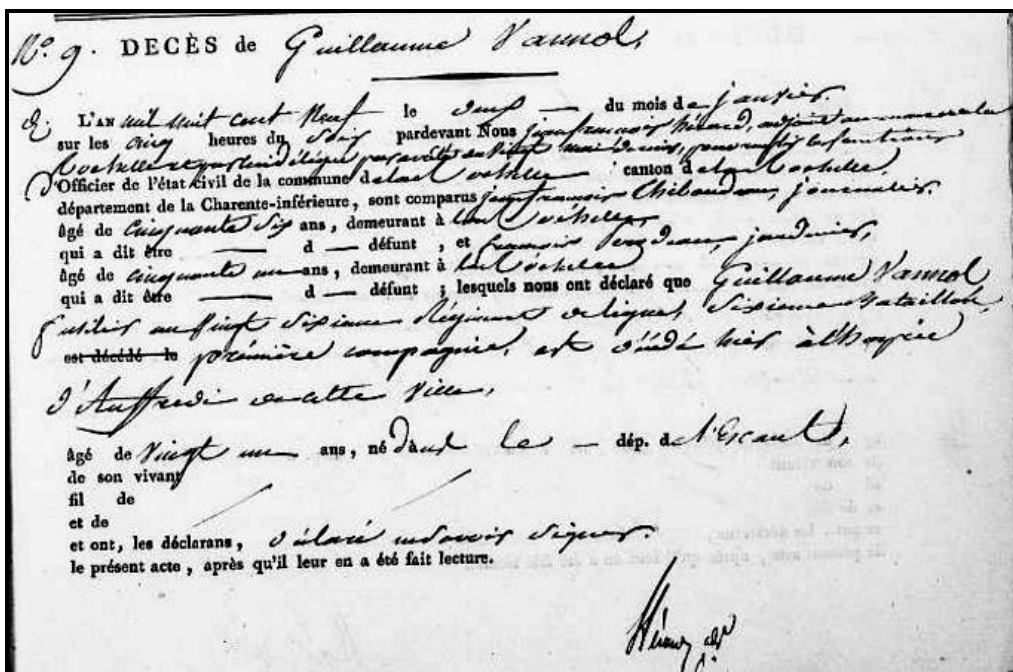 N.º 9. DECÈS de Guillaume Vannol,
L'AN mil huit cent Neuf le deux — du mois de janvier.
sur les cinq heures du Soir pardevant Nous jean françois hérard, adjoint au maire de la
Rochelle et par lui délégué par arrêté du Vingt mai dernier, pour remplir les fonctions
d'Officier de l'état civil de la commune de la Rochelle canton de la Rochelle,
département de la Charente-inférieure, sont comparus jean françois Chibaudeau, journalier,
âgé de cinquante Six ans, demeurant à la Rochelle,
qui a dit être — d — défunt, et françois jardinier,
âgé de cinquante un ans, demeurant à la Rochelle
qui a dit être — d — défunt; lesquels nous ont déclaré que Guillaume Vannol
fusilier au Vingt Sixième Régiment de ligne, Sixième Bataillon,
est décédé le première compagnie, est décédé hier à l'hospice
d'Auffredi de cette Ville,
âgé de Vingt un ans, né dans le — dép. de l'Escaut,
de son vivant
fil de
et de
et ont, les déclarans, déclaré ne savoir Signer.
le présent acte, après qu'il leur en a été fait lecture.